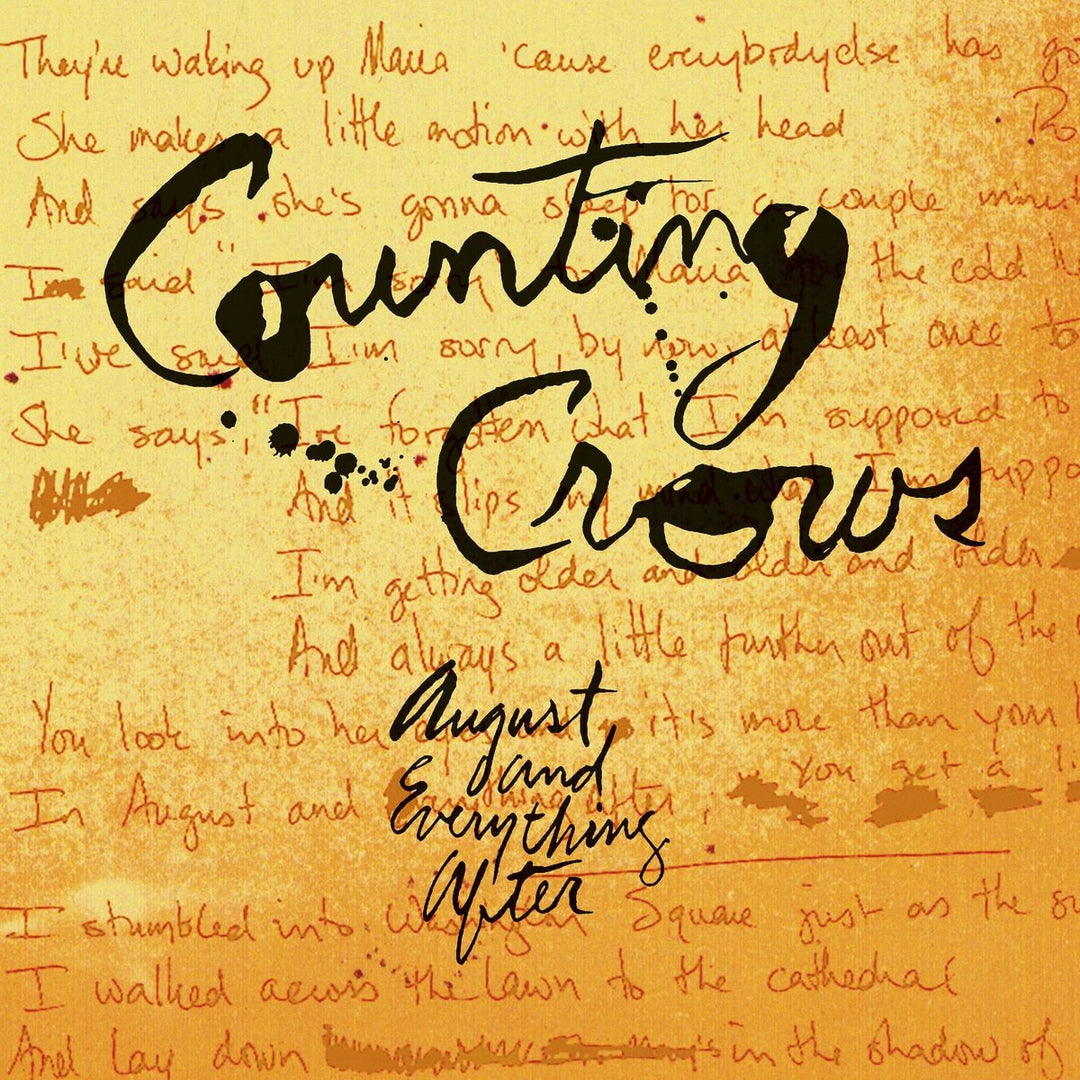 They're waking up Maria 'cause everybodyelse has go
She makes a little motion with her head
Ro
And says she's gonna sleep for a couple minut
I'm said "I'm sorry" to Maria for the cold h
I've said I'm sorry, by now, at least once to
She says, "I've forgotten what I'm supposed to
And it slips my mind what I'm suppo
I'm getting older and older and older
And always a little further out of the
You look into her it's more than your
You get a li
In August and Everything After,
I stumbled into Washington Square just as the su
I walked across the lawn to the cathedral
And lay down in the shadow of
Counting
Crows
August
and
Everything
After